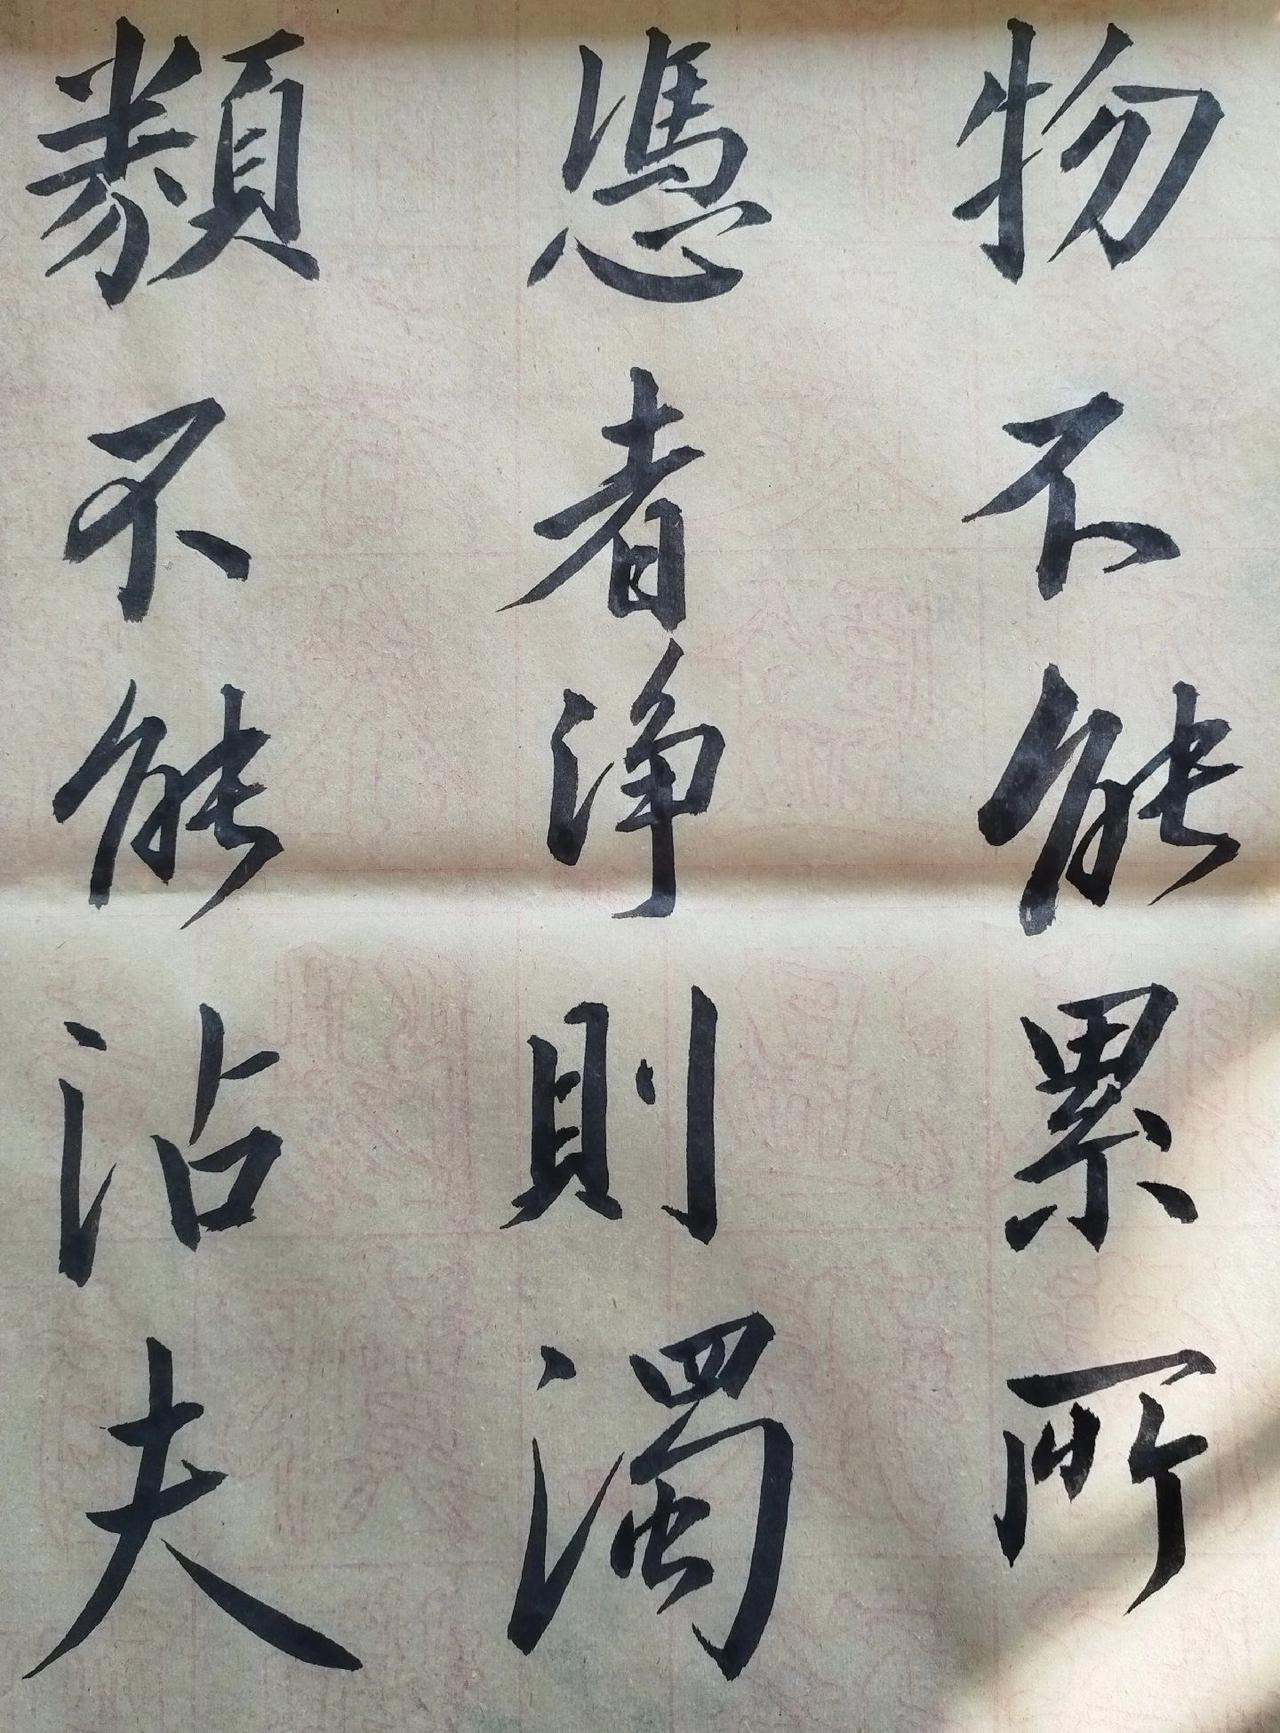 物不能累所
憑者浄則濁
類不能沾夫